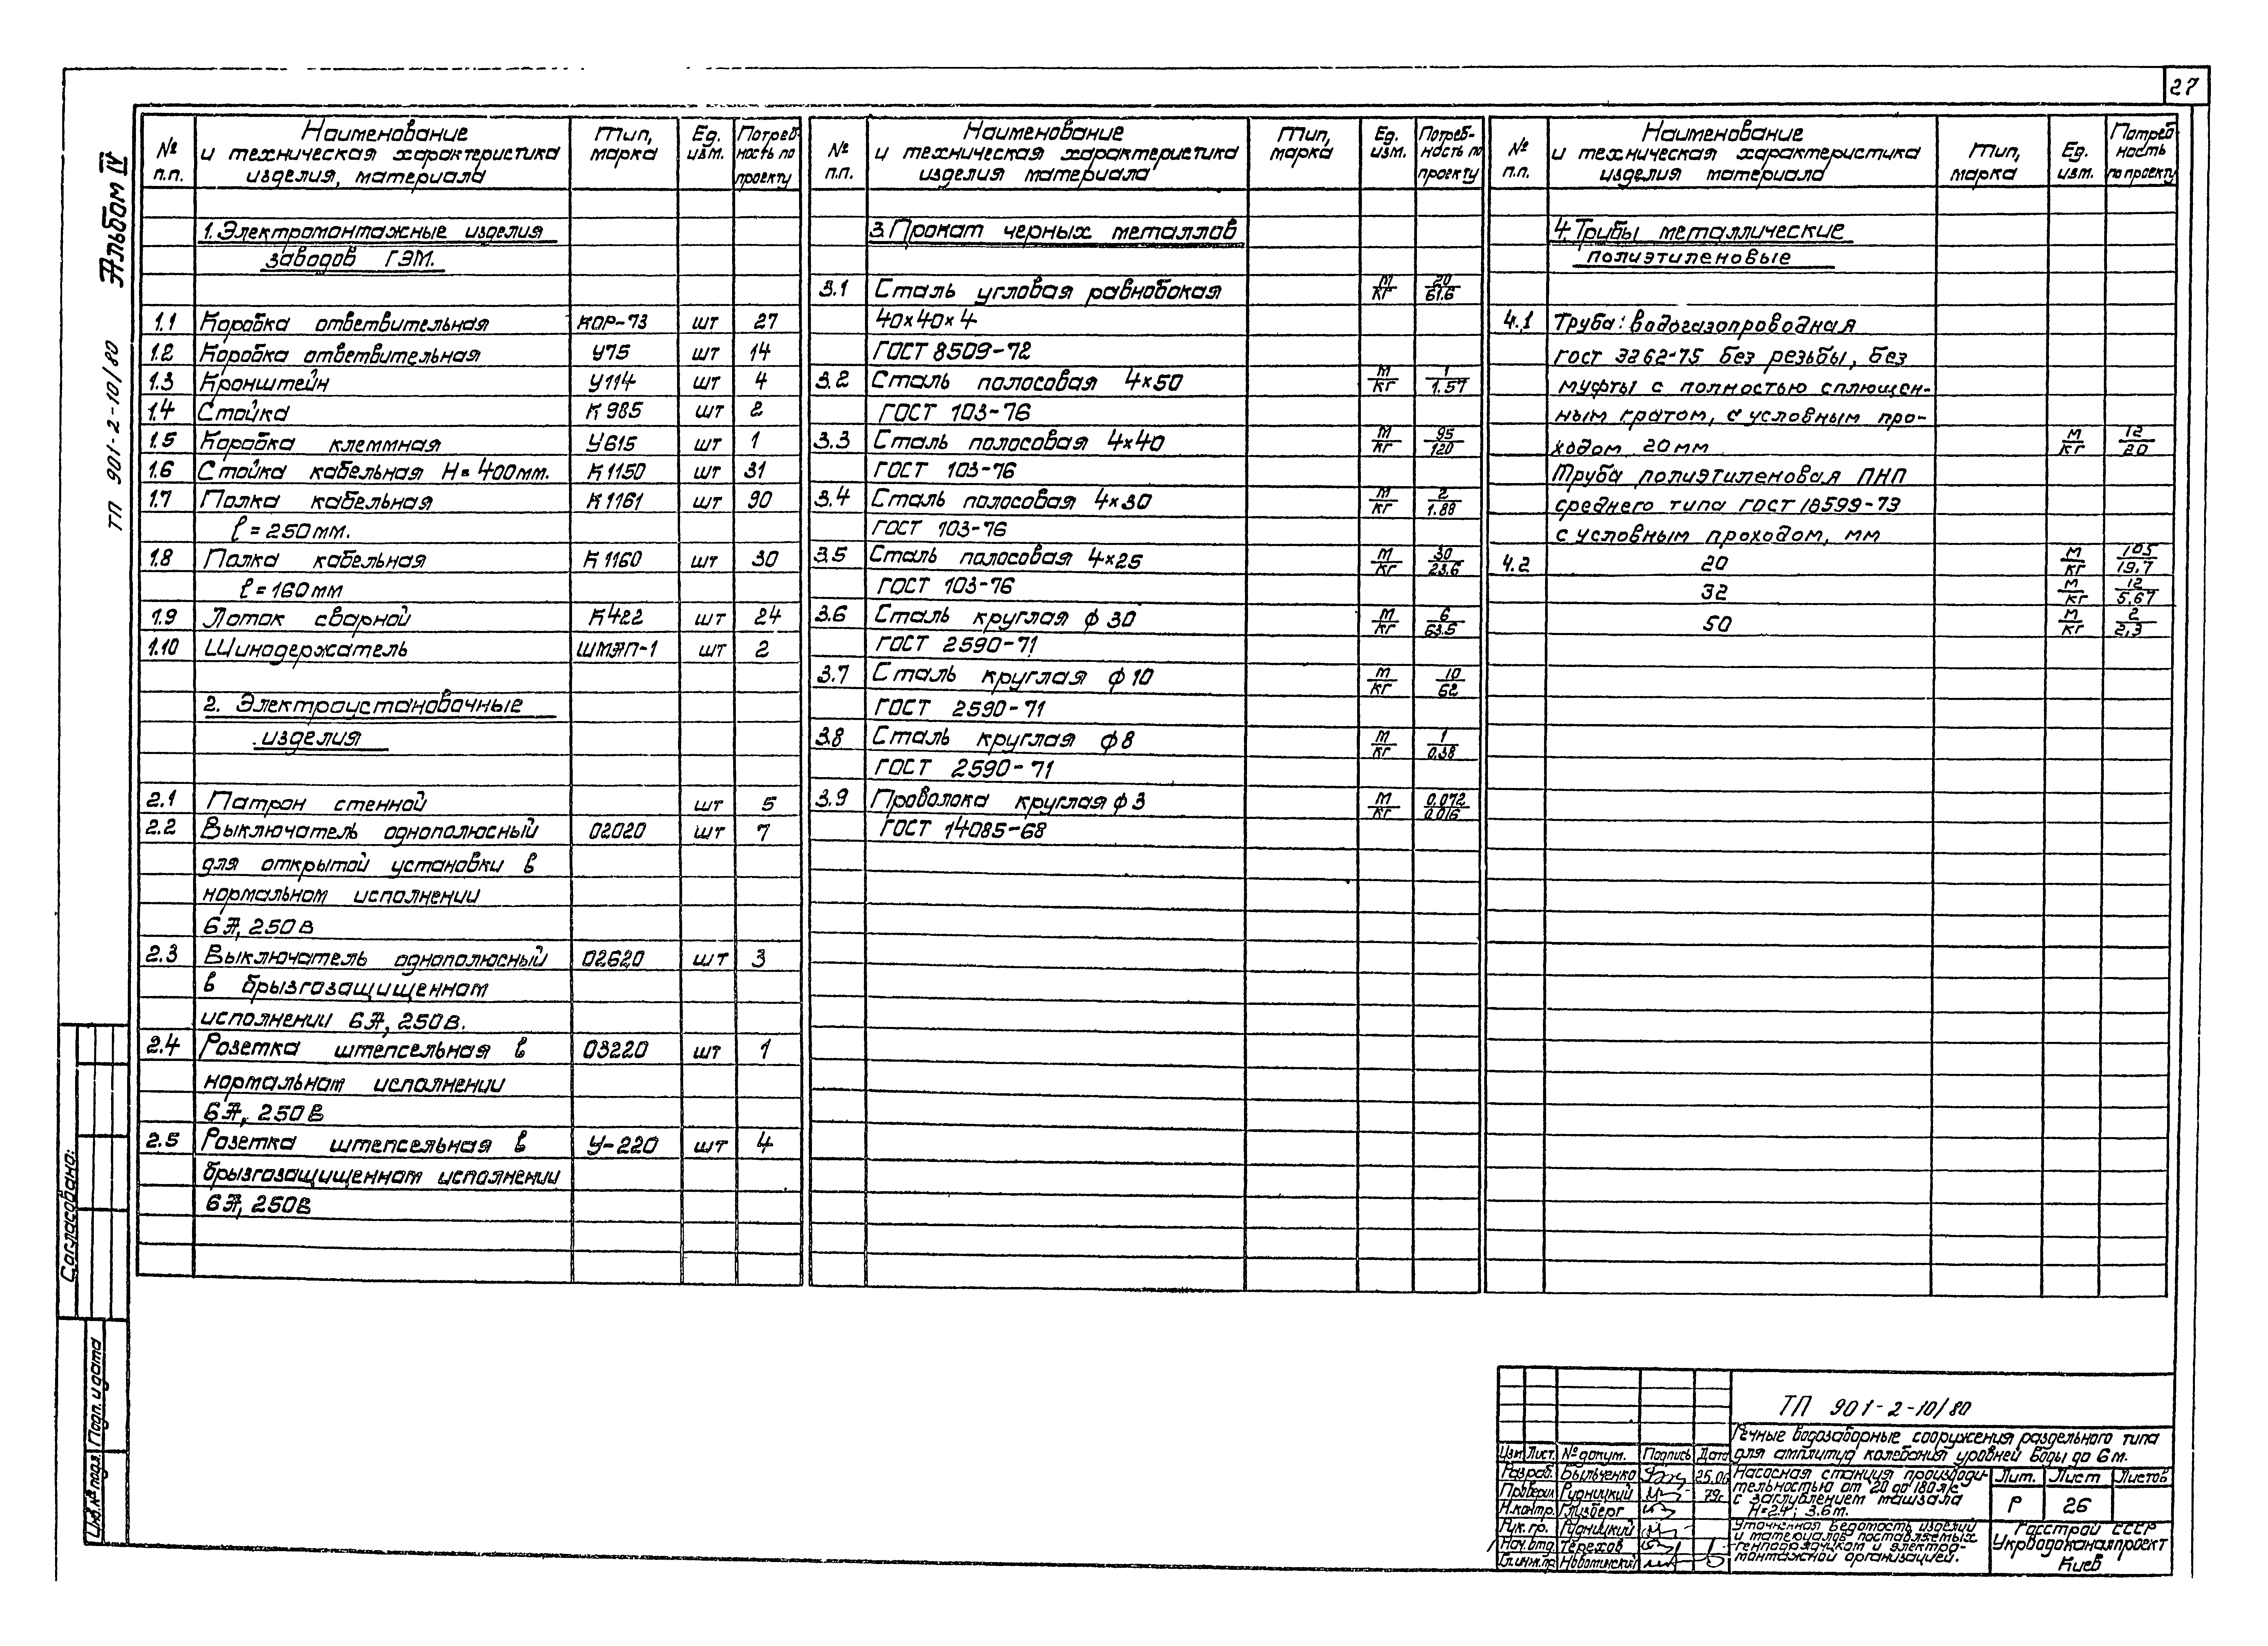 27
Альбом IV
ТП 901-2-10/80
№ п.п. Наименование и техническая характеристика изделия, материала Тип, марка Ед. изм. Потреб-ность по проекту
1. Электромонтажные изделия
заводов ГЭМ.
1.1 Коробка ответвительная КОР-73 шт 27
1.2 Коробка ответвительная У75 шт 14
1.3 Кронштейн У114 шт 4
1.4 Стойка К985 шт 2
1.5 Коробка клеммная У615 шт 1
1.6 Стойка кабельная Н=400мм. К1150 шт 31
1.7 Полка кабельная К1161 шт 90
ℓ=250мм.
1.8 Полка кабельная К1160 шт 30
ℓ=160мм
1.9 Лоток сварной К422 шт 24
1.10 Шинодержатель ШМАП-1 шт 2
2. Электроустановочные
изделия
2.1 Патрон стенной шт 5
2.2 Выключатель однополюсный 02020 шт 7
для открытой установки в
нормальном исполнении
6А, 250В
2.3 Выключатель однополюсный 02620 шт 3
в брызгозащищенном
исполнении 6А, 250В.
2.4 Розетка штепсельная в 03220 шт 1
нормальном исполнении
6А, 250В
2.5 Розетка штепсельная в У-220 шт 4
брызгозащищенном исполнении
6А, 250В
№ п.п. Наименование и техническая характеристика изделия материала Тип, марка Ед. изм. Потреб-ность по проекту
3. Прокат черных металлов
3.1 Сталь угловая равнобокая м/кг 20/61.6
40×40×4
ГОСТ 8509-72
3.2 Сталь полосовая 4×50 м/кг 1/1.57
ГОСТ 103-76
3.3 Сталь полосовая 4×40 м/кг 95/120
ГОСТ 103-76
3.4 Сталь полосовая 4×30 м/кг 2/1.88
ГОСТ 103-76
3.5 Сталь полосовая 4×25 м/кг 30/23.6
ГОСТ 103-76
3.6 Сталь круглая ф30 м/кг 6/53.5
ГОСТ 2590-71
3.7 Сталь круглая ф10 м/кг 10/62
ГОСТ 2590-71
3.8 Сталь круглая ф8 м/кг 1/0.38
ГОСТ 2590-71
3.9 Проволока круглая ф3 м/кг 0.072/0.016
ГОСТ 14085-68
№ п.п. Наименование и техническая характеристика изделия материала Тип, марка Ед. изм. Потреб ность по проекту
4. Трубы металлические
полиэтиленовые
4.1 Труба: водогазопроводная
гост 3262-75 без резьбы, без
муфты с полностью сплющен-
ным гратом, с условным про-
ходом 20мм м/кг 12/20
Труба полиэтиленовая ПНП
среднего типа ГОСТ 18599-73
с условным проходом, мм
4.2 20 м/кг 105/19.7
32 м/кг 12/5,67
50 м/кг 2/2,3
Согласовано:
Инв.№ подл. Подп. и дата
ТП 901-2-10/80
Речные водозаборные сооружения раздельного типа
для амплитуд колебания уровней воды до 6м.
Изм Лист. № докум. Подпись Дата
Разраб. Быльченко 25.06
Проверил Рудницкий 79г.
Н.контр. Глузберг
Рук. гр. Рудницкий
Нач.отд Терехов
Гл.инж.пр Новотинский
Насосная станция производи-
тельностью от 20 до 180 л/с
с заглублением машзала
Н=2.4; 3.6м.
Лит. Лист Листов
Р 26
Уточненная ведомость изделий
и материалов поставляемых
генподрядчиком и электро-
монтажной организацией.
Госстрой СССР
Укрводоканалпроект
Киев